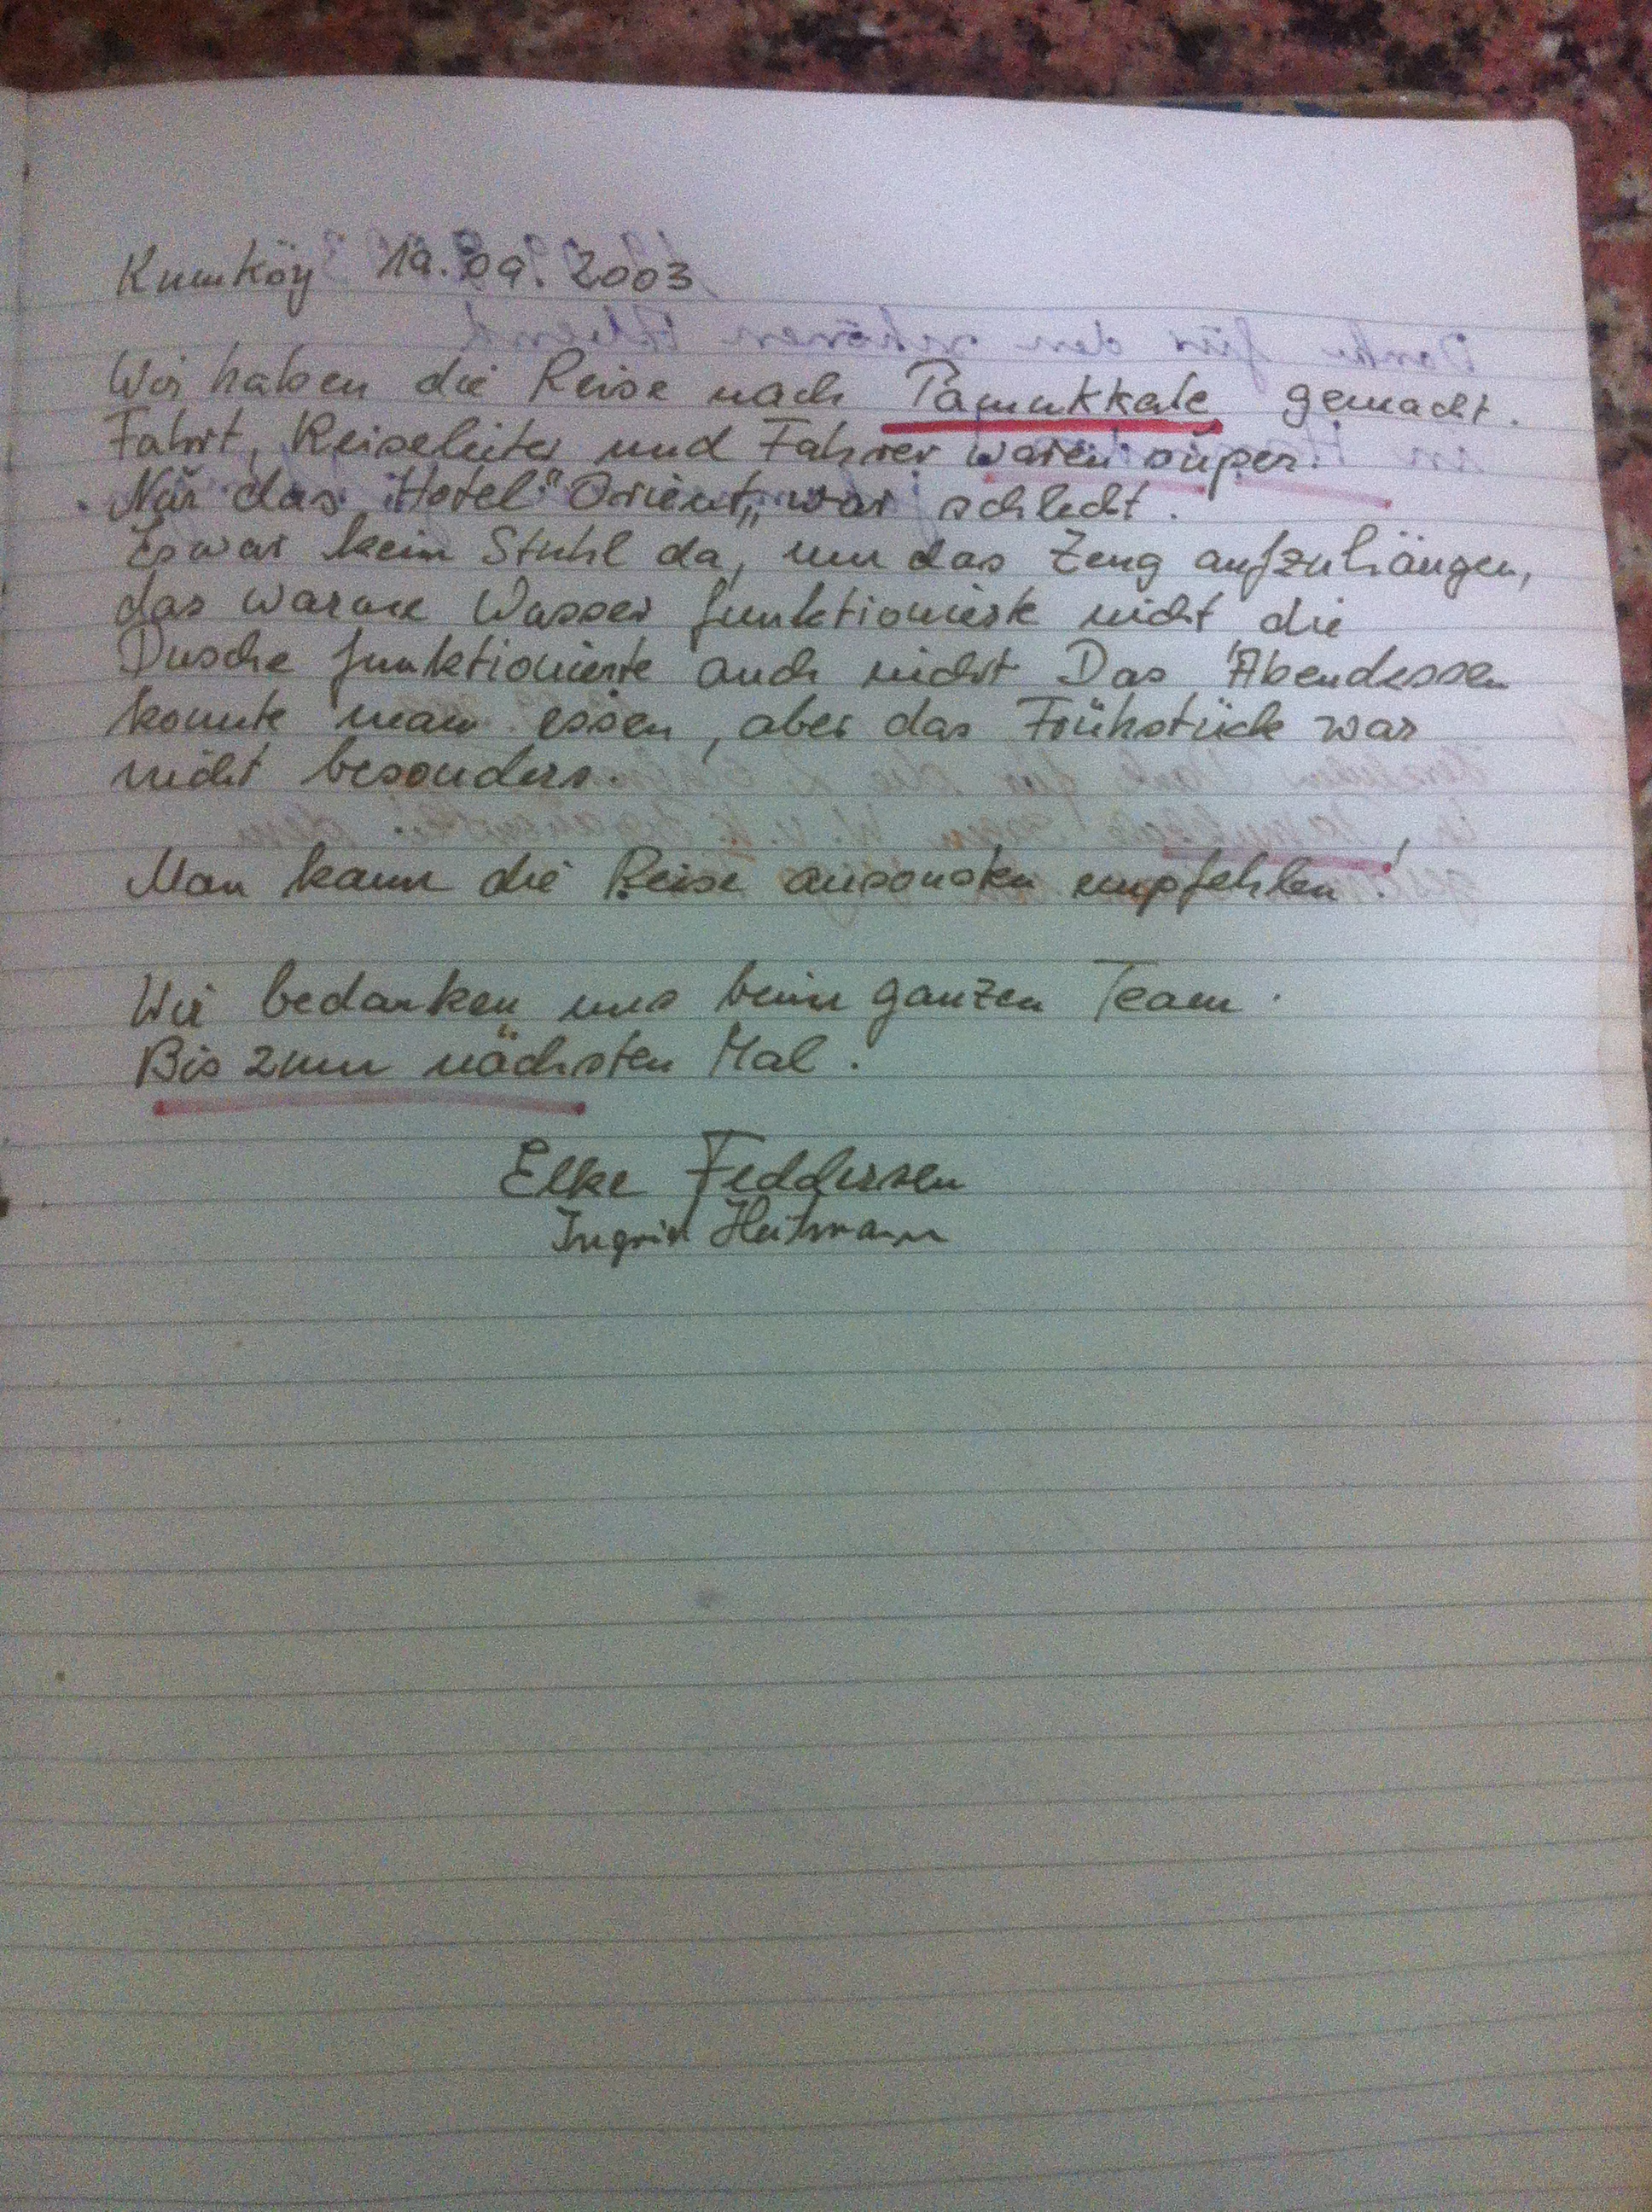 Kumköy 19.09.2003
Wir haben die Reise nach Pamukkale gemacht.
Fahrt, Reiseleiter und Fahrer waren super.
Nur das Hotel "Orient" war schlecht.
Es war kein Stuhl da, um das Zeug aufzuhängen,
das warme Wasser funktionierte nicht die
Dusche funktionierte auch nicht Das Abendessen
konnte man essen, aber das Frühstück war
nicht besonders.
Man kann die Reise ansonsten empfehlen!
Wir bedanken uns beim ganzen Team.
Bis zum nächsten Mal.
Elke Feddersen
Ingrid Heitmann